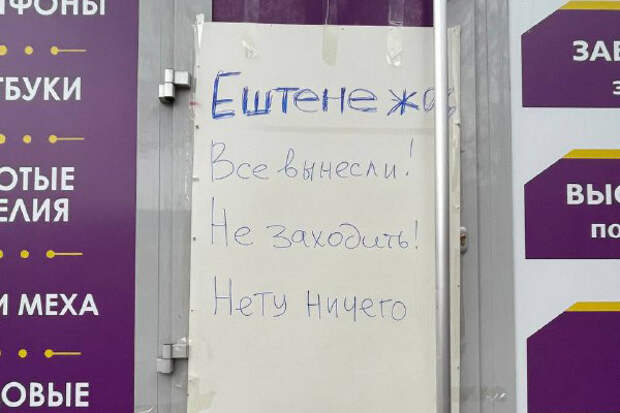 ФОНЫ
ТБУКИ
ОТЫЕ
ЕЛИЯ
И МЕХА
ОВЫЕ
Ештене жоқ
Все вынесли!
Не заходить!
Нету ничего
ВЫС
по